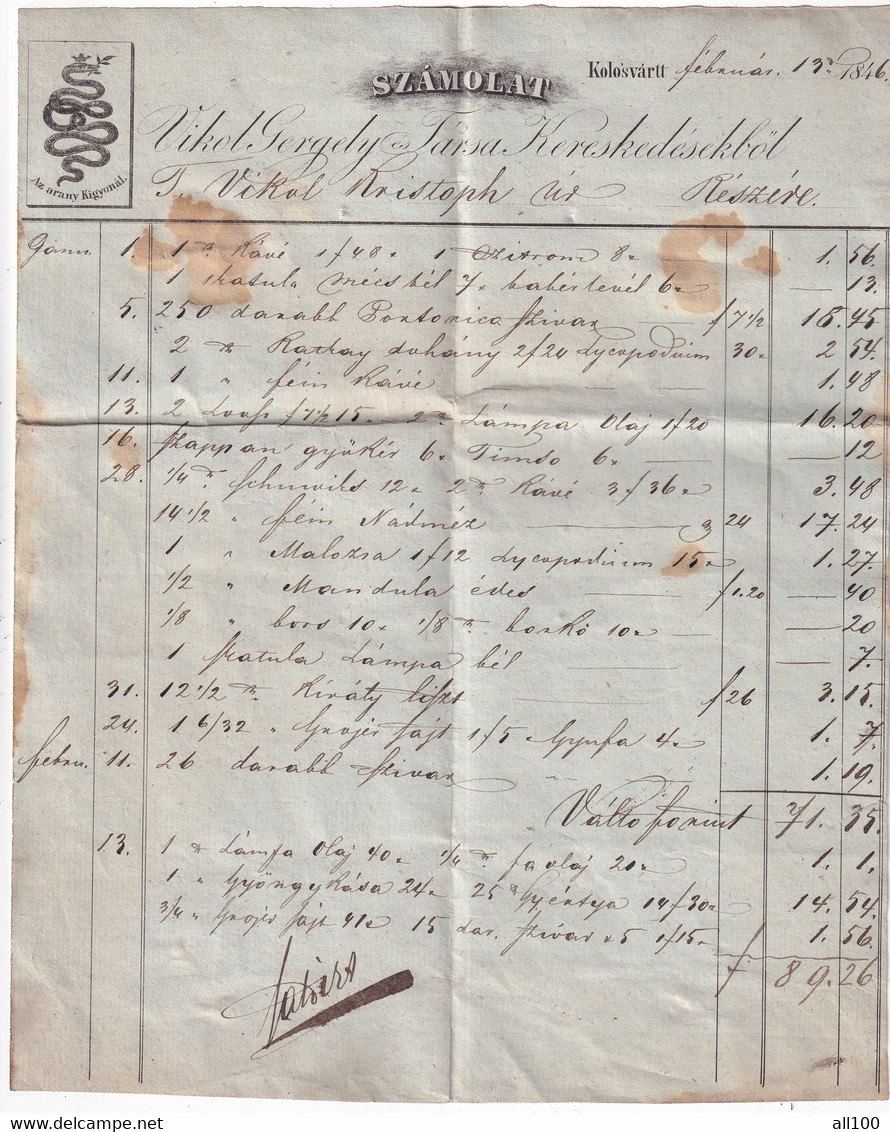 SZÁMOLAT
Kolo'svártt február. 13n 1846.
Vikol Gergely és Társa Kereskedésekből
Az arany Kigyonál.
T. Vikol Kristoph Úr Részére.
Janu. 1. 1 ℔ Kávé 1f48x 1 Czitrom 8x 1. 56.
1 skatula mécs bél 7x babérlevél 6x — 13.
5. 250 darabb Portorico szivar f 7 1/2 18. 45
2 ℔ dohány 2f24 Lycopodium 30x 2 54.
11. 1 " fein Kávé 1. 48
13. 2 f 7 1/2 15. 2 ℔ Lámpa Olaj 1f20 16. 20
16. szappan gyökér 6x Timso 6x — 12
28. 1/4 ℔ 12x 2 ℔ Kávé 3f36x 3. 48
14 1/2 " fein Nádméz 24 17. 24
1 " Malozsa 1f12 Lycopodium 15x 1. 27.
1/2 " Mandula édes f1.20 — 40
1/8 " bors 10x 1/8 ℔ borkő 10x — 20
1 skatula Lámpa bél — 7.
31. 12 1/2 ℔ Király liszt f26 3. 15.
24. 1 6/32 " Grojer sajt 1f5 Gyufa 4x 1. 7.
febru. 11. 26 darabb szivar 1. 19.
Válto forint 71. 35.
13. 1 ℔ Lámpa Olaj 40x 1/4 ℔ fa olaj 21x 1. 1.
1 " Gyöngykása 24x 25 ℔ Gyértya 14f30x 14. 54.
3/4 " Grojer sajt 41x 15 dar. szivar x5 1f15x 1. 56.
f 89. 26
all100